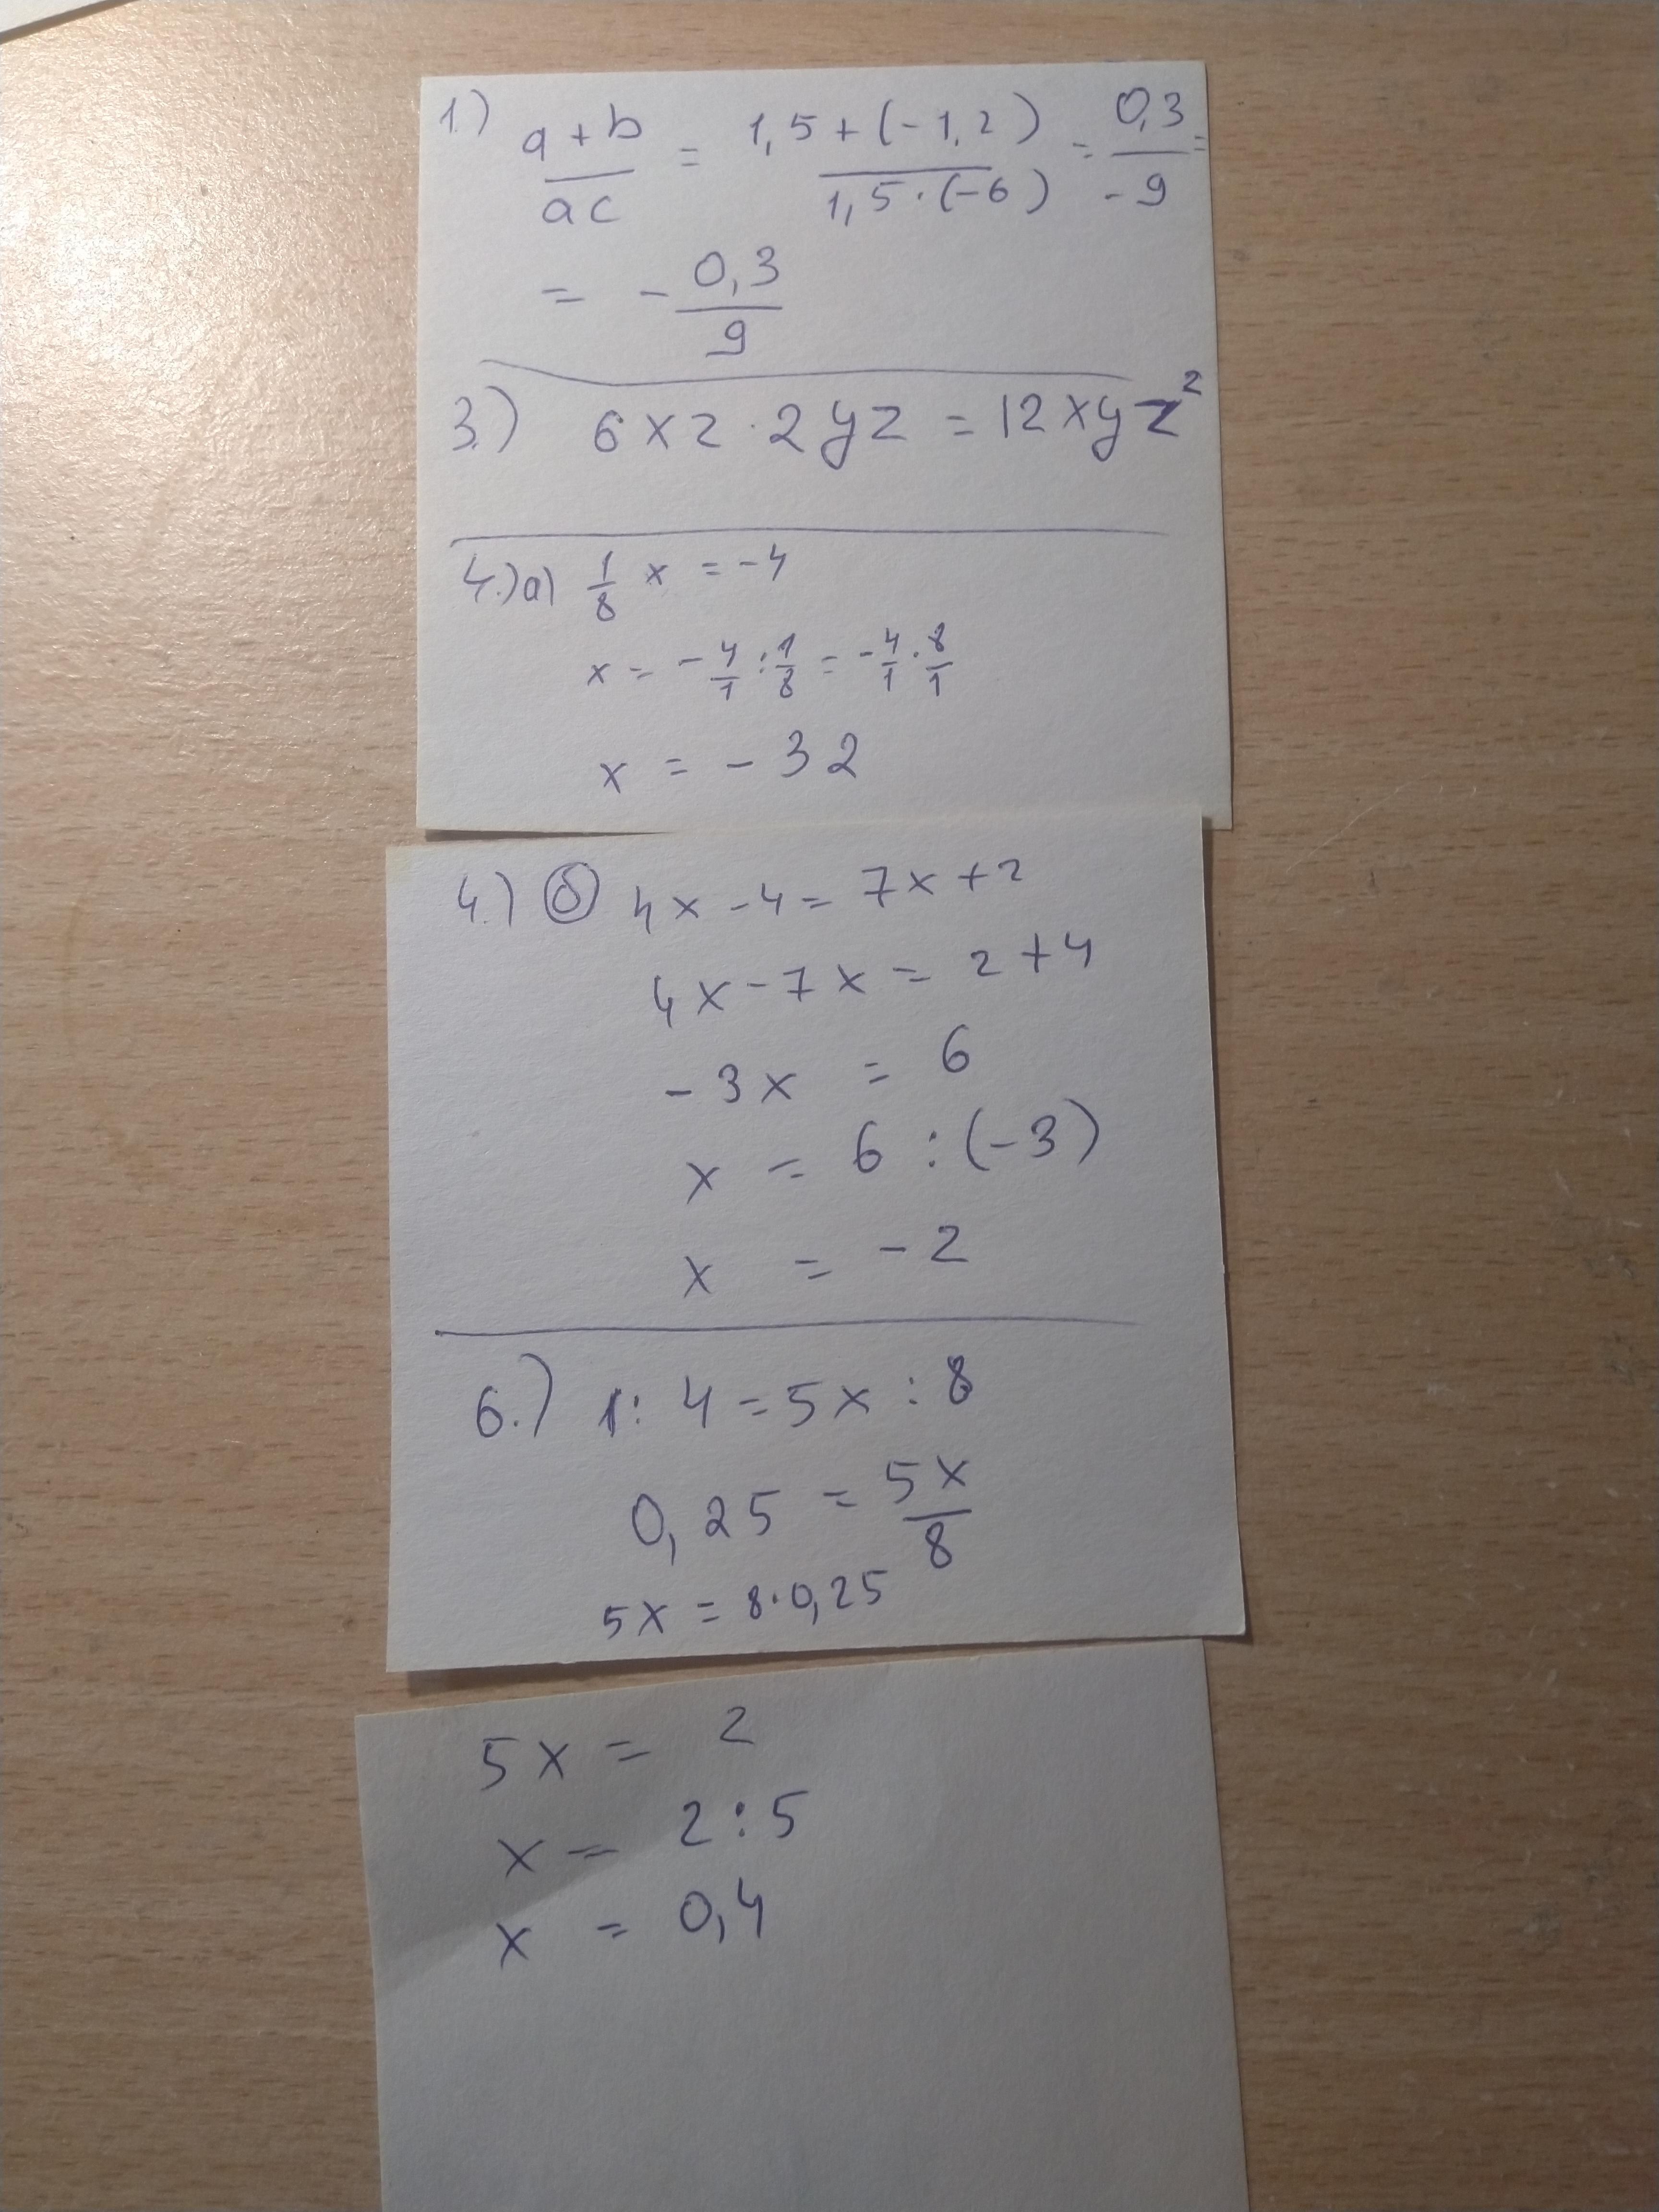 1.) a+b/ac = 1,5+(-1,2)/1,5·(-6) = 0,3/-9 =
= -0,3/9
3.) 6xz·2yz = 12xyz²
4.) а) 1/8 x = -4
x = -4/1 : 1/8 = -4/1 · 8/1
x = -32
4.) б 4x-4=7x+2
4x-7x = 2+4
-3x = 6
x = 6:(-3)
x = -2
6.) 1:4=5x:8
0,25 = 5x/8
5x = 8·0,25
5x = 2
x = 2:5
x = 0,4